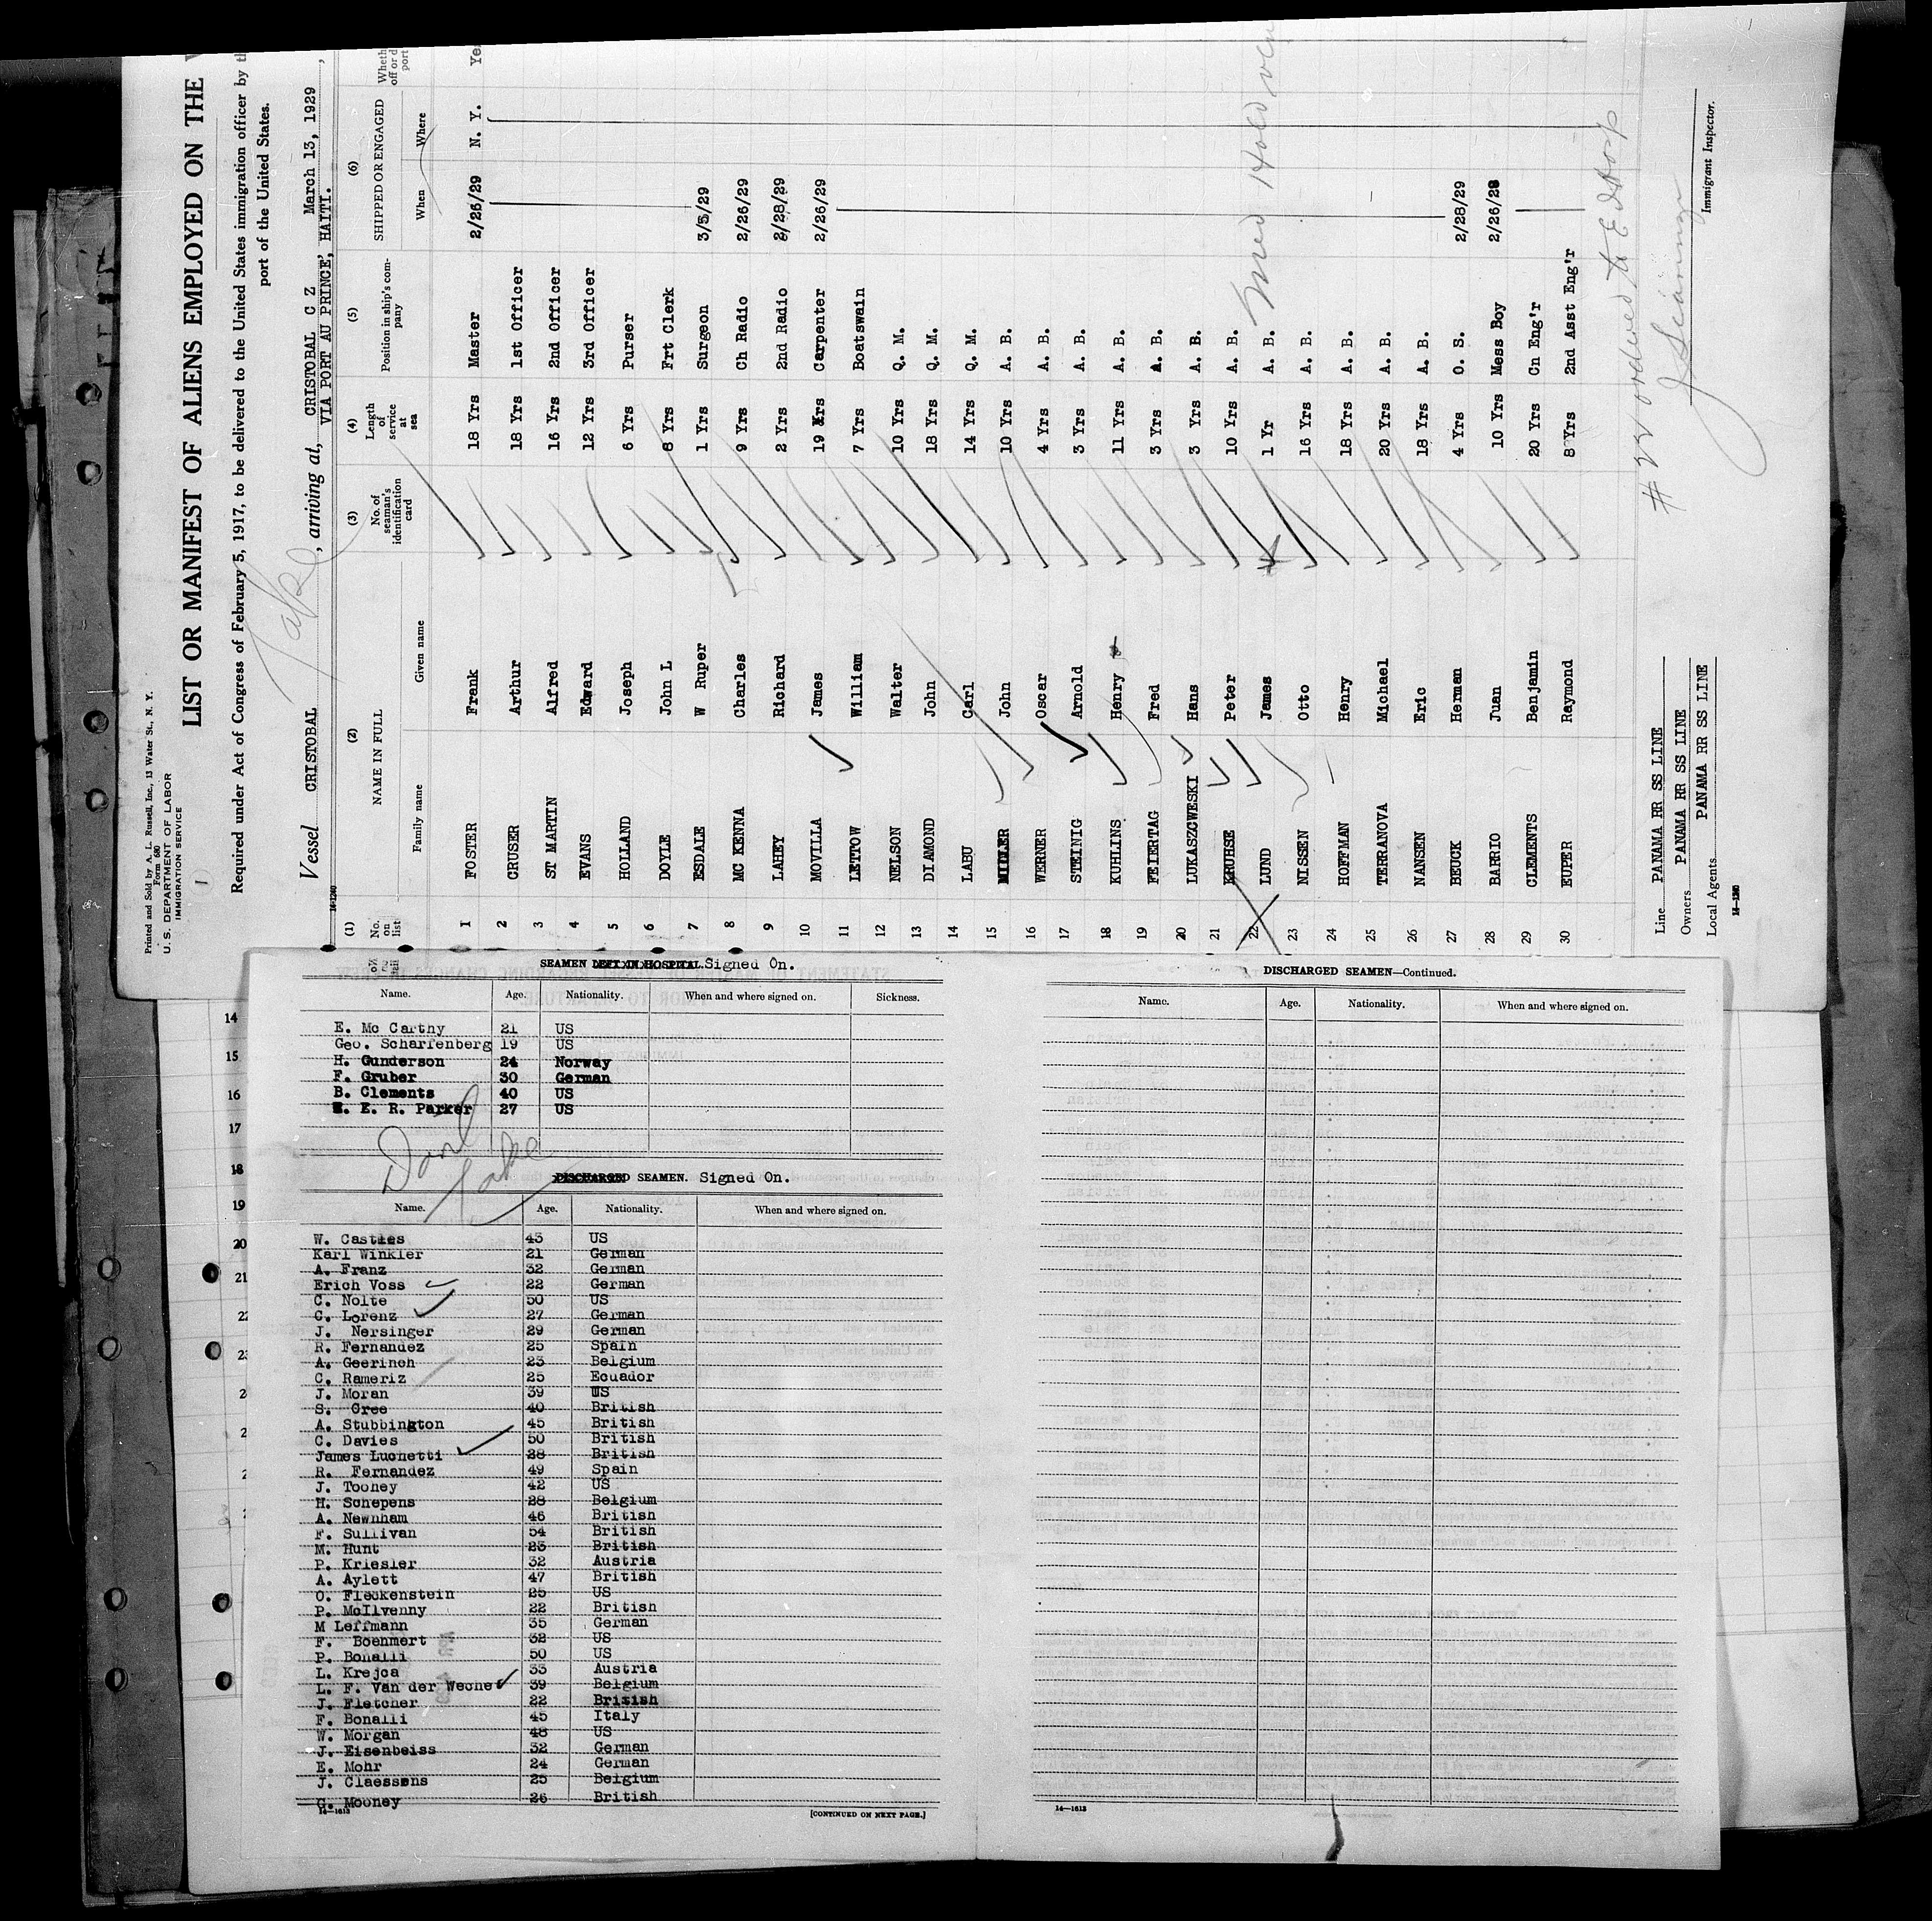 Printed and Sold by A. L. Russell, Inc., 13 Water St., N. Y.
Form 680
U. S. DEPARTMENT OF LABOR
IMMIGRATION SERVICE
1
LIST OR MANIFEST OF ALIENS EMPLOYED ON THE
Required under Act of Congress of February 5, 1917, to be delivered to the United States immigration officer by
port of the United States.
Take
Vessel CRISTOBAL, arriving at, CRISTOBAL C Z March 13, 1929,
VIA PORT AU PRINCE, HAITI.
14-1240
(1) (2) (3) (4) (5) (6)
No. on list NAME IN FULL No. of seaman's identification card Length of service at sea Position in ship's company SHIPPED OR ENGAGED
Family name Given name When Where
1 FOSTER Frank 18 Yrs Master 2/26/29 N. Y.
2 CRUSER Arthur 18 Yrs 1st Officer
3 ST MARTIN Alfred 16 Yrs 2nd Officer
4 EVANS Edward 12 Yrs 3rd Officer
5 HOLLAND Joseph 6 Yrs Purser
6 DOYLE John L 8 Yrs Frt Clerk
7 ESDALE W Ruper 1 Yrs Surgeon 3/3/29
8 MC KENNA Charles 9 Yrs Ch Radio 2/26/29
9 LAHEY Richard 2 Yrs 2nd Radio 2/28/29
10 MOVILLA James 19 Yrs Carpenter 2/26/29
11 LETTOW William 7 Yrs Boatswain
12 NELSON Walter 10 Yrs Q. M.
13 DIAMOND John 18 Yrs Q. M.
14 LABU Carl 14 Yrs Q. M.
15 MILLER John 10 Yrs A. B.
16 WERNER Oscar 4 Yrs A. B.
17 STEINIG Arnold 3 Yrs A. B.
18 KUHLINS Henry 11 Yrs A. B.
19 FEIERTAG Fred 3 Yrs A. B.
20 LUKASZCWESKI Hans 3 Yrs A. B.
21 KRUHSE Peter 10 Yrs A. B.
22 LUND James 1 Yr A. B.
23 NISSEN Otto 16 Yrs A. B.
24 HOFFMAN Henry 18 Yrs A. B.
25 TERRANOVA Michael 20 Yrs A. B.
26 NANSEN Eric 18 Yrs A. B.
27 BEUCK Herman 4 Yrs O. S. 2/28/29
28 BARRIO Juan 10 Yrs Mess Boy 2/26/28
29 CLEMENTS Benjamin 20 Yrs Cn Eng'r
30 EUPER Raymond 8 Yrs 2nd Asst Eng'r
Line PANAMA RR SS LINE
Owners PANAMA RR SS LINE
Local Agents PANAMA RR SS LINE
Immigrant Inspector.
SEAMEN LEFT IN HOSPITAL. Signed On.
Name. Age. Nationality. When and where signed on. Sickness.
E. Mc Carthy 21 US
Geo. Scharfenberg 19 US
H. Gunderson 24 Norway
F. Gruber 30 German
B. Clements 40 US
E. R. Parker 27 US
Dont
Take
DISCHARGED SEAMEN. Signed On.
Name. Age. Nationality. When and where signed on.
W. Castles 43 US
Karl Winkler 21 German
A. Franz 32 German
Erich Voss 22 German
C. Nolte 50 US
C. Lorenz 27 German
J. Nersinger 29 German
R. Fernandez 25 Spain
A. Geerinch 23 Belgium
C. Rameriz 25 Ecuador
J. Moran 39 US
S. Cree 40 British
A. Stubbington 45 British
C. Davies 50 British
James Luchetti 28 British
R. Fernandez 49 Spain
J. Tooney 42 US
H. Schepens 28 Belgium
A. Newnham 46 British
F. Sullivan 54 British
M. Hunt 23 British
P. Kriesler 32 Austria
A. Aylett 47 British
O. Fleckenstein 25 US
P. McIlvenny 22 British
M Leffmann 35 German
F. Boehmert 32 US
P. Bonalli 50 US
L. Krejca 33 Austria
L. F. Van der Weche 39 Belgium
J. Fletcher 22 British
F. Bonalli 45 Italy
W. Morgan 48 US
J. Eisenbeiss 32 German
E. Mohr 24 German
J. Claessens 25 Belgium
G. Mooney 26 British
14-1613
[CONTINUED ON NEXT PAGE.]
DISCHARGED SEAMEN—Continued.
Name. Age. Nationality. When and where signed on.
14-1613
14
15
16
17
18
19
20
21